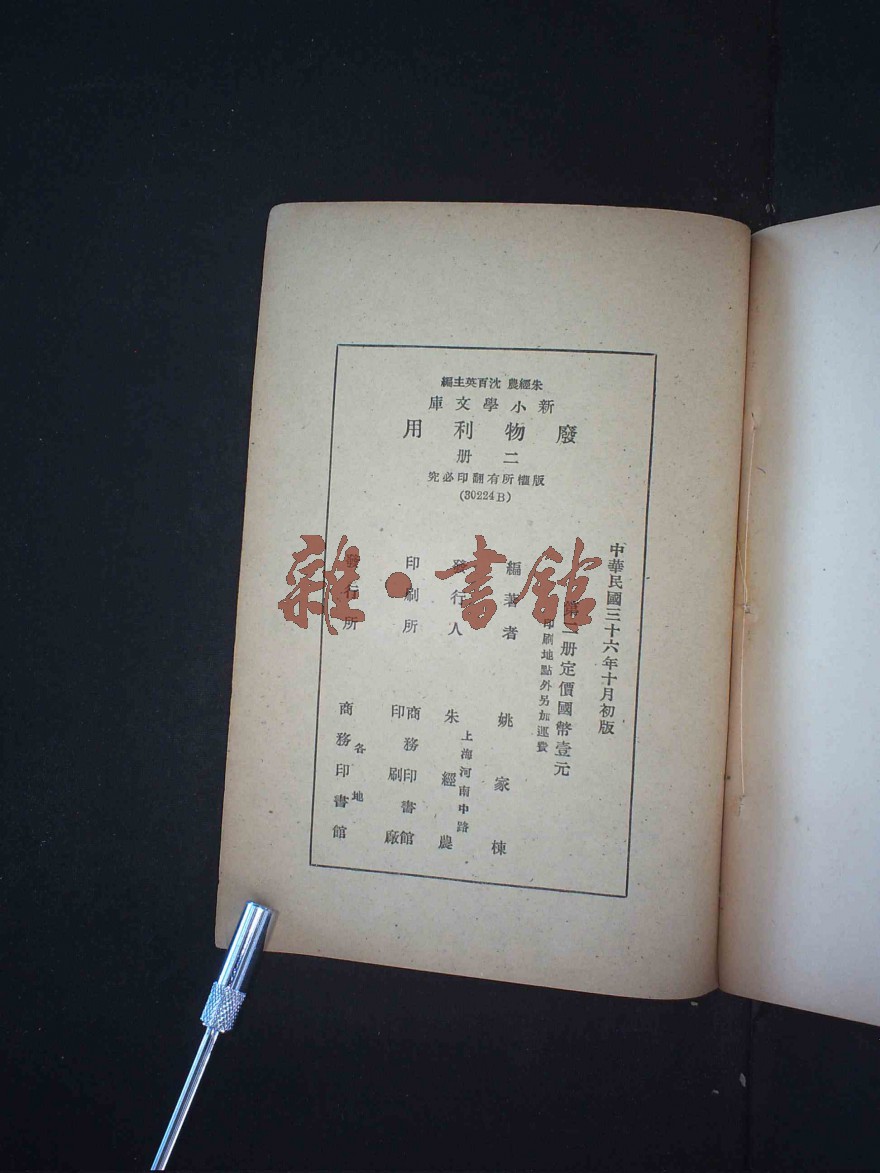 朱經農 沈百英主編
新小學文庫
廢物利用
二冊
版權所有翻印必究
(30224B)
中華民國三十六年十月初版
第二册定價國幣壹元
印刷地點外另加運費
編著者 姚家棟
發行人 朱經農
上海河南中路
印刷所 商務印書館印刷廠
發行所 各地商務印書館
雜·書館